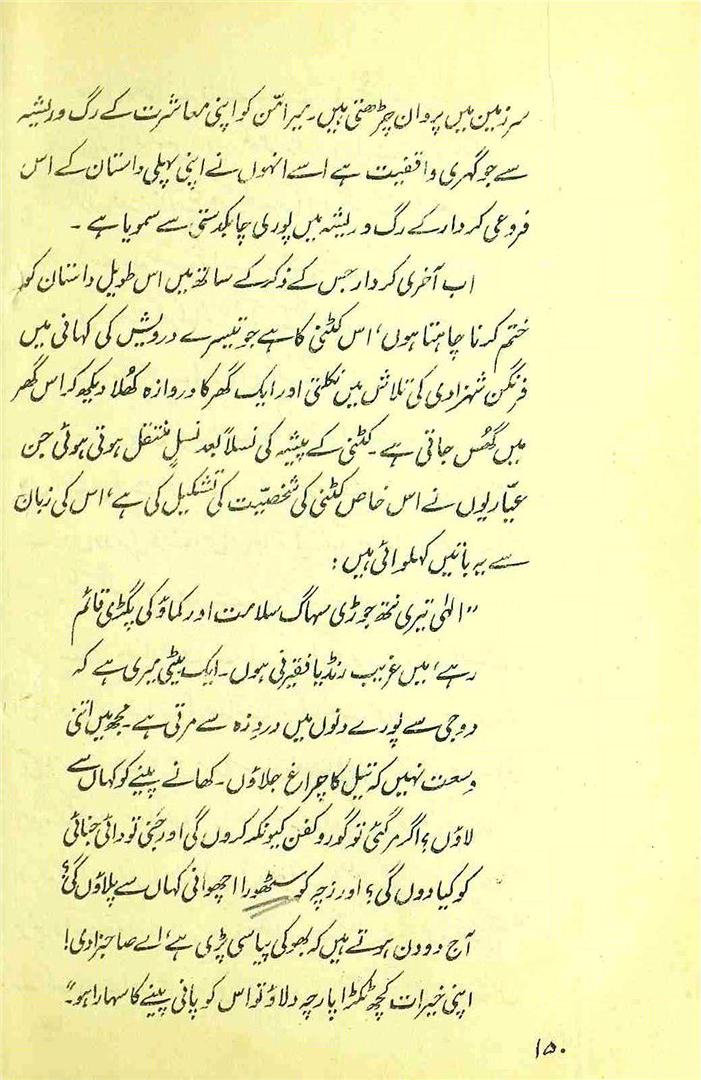 سرزمین میں پروان چڑھتی ہیں۔ میرامّن کو اپنی معاشرت کے رگ و ریشہ
سے جو گہری واقفیت ہے اسے انہوں نے اپنی پہلی داستان کے اس
فروعی کردار کے رگ و ریشہ میں پوری چابکدستی سے سمویا ہے۔
اب آخری کردار جس کے ذکر کے ساتھ میں اس طویل داستان کو
ختم کرنا چاہتا ہوں، اس کٹنی کا ہے جو تیسرے درویش کی کہانی میں
فرنگن شہزادی کی تلاش میں نکلتی اور ایک گھر کا دروازہ کُھلا دیکھ کر اس گھر
میں گُھس جاتی ہے۔ کٹنی کے پیشہ کی نسلاً بعد نسلٍ منتقل ہوتی ہوئی جن
عیّاریوں نے اس خاص کٹنی کی شخصیّت کی تشکیل کی ہے، اس کی زبان
سے یہ باتیں کہلوائی ہیں:
"الٰہی تیری نتھ جوڑی سہاگ سلامت اور کماؤ کی پگڑی قائم
رہے، میں غریب رنڈیا فقیرنی ہوں۔ ایک بیٹی میری ہے کہ
دوجی سے پورے دنوں میں دردِ زہ سے مرتی ہے۔ مجھ میں اتنی
وسعت نہیں کہ تیل کا چراغ جلاؤں۔ کھانے پینے کو کہاں سے
لاؤں؟ اگر مر گئی تو گور و کفن کیونکر کروں گی اور جَنی تو دائی جنائی
کو کیا دوں گی؟ اور زچہ کو سٹھورا اچھوانی کہاں سے پلاؤں گی؟
آج دو دن ہوتے ہیں کہ بھوکی پیاسی پڑی ہے، اے صاحبزادی!
اپنی خیرات کچھ ٹکڑا پارچہ دلاؤ تو اس کو پانی پینے کا سہارا ہو۔"
۱۵۰